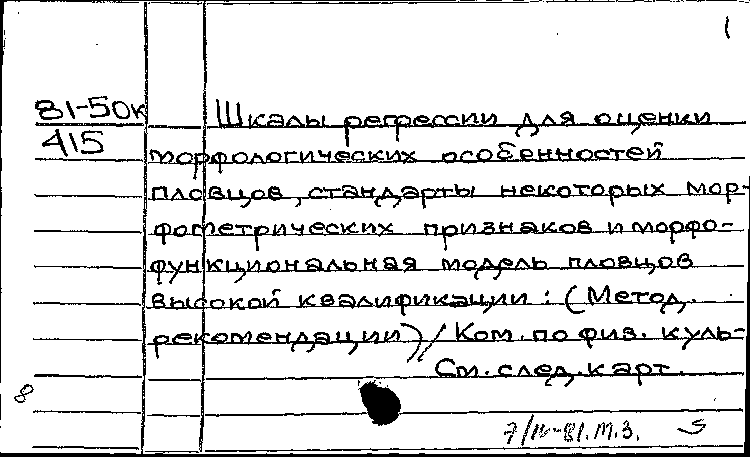 1
81-50к
415
Шкалы регрессии для оценки
морфологических особенностей
пловцов, стандарты некоторых мор-
фометрических признаков и морфо-
функциональная модель пловцов
высокой квалификации: (Метод.
рекомендации)/Ком. по физ. куль-
См. след. карт.
8
7/IV-81. М.З.